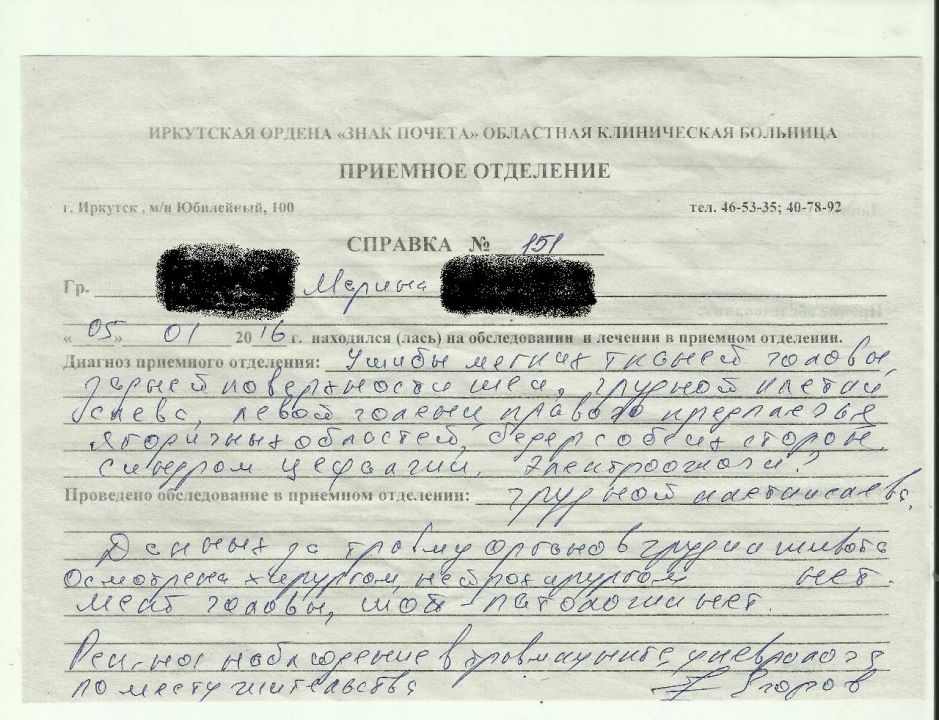 ИРКУТСКАЯ ОРДЕНА «ЗНАК ПОЧЕТА» ОБЛАСТНАЯ КЛИНИЧЕСКАЯ БОЛЬНИЦА
ПРИЕМНОЕ ОТДЕЛЕНИЕ
г. Иркутск, м/н Юбилейный, 100 тел. 46-53-35; 40-78-92
СПРАВКА № 151
Гр. Марина
«05» 01 2016 г. находился (лась) на обследовании и лечении в приемном отделении.
Диагноз приемного отделения: Ушибы мягких тканей головы,
задней поверхности шеи, грудной клетки
слева, левой голени, правого предплечья
ягодичных областей, бедер с обеих сторон.
Синдром цефалгии. Электроожоги?
Проведено обследование в приемном отделении: грудной клетки слева.
Данных за травму органов груди и живота
Осмотрена хирургом, нейрохирургом нет.
головы, - патологии нет.
Рек-но: наблюдение в травмпункте, у невролога
по месту жительства Егоров